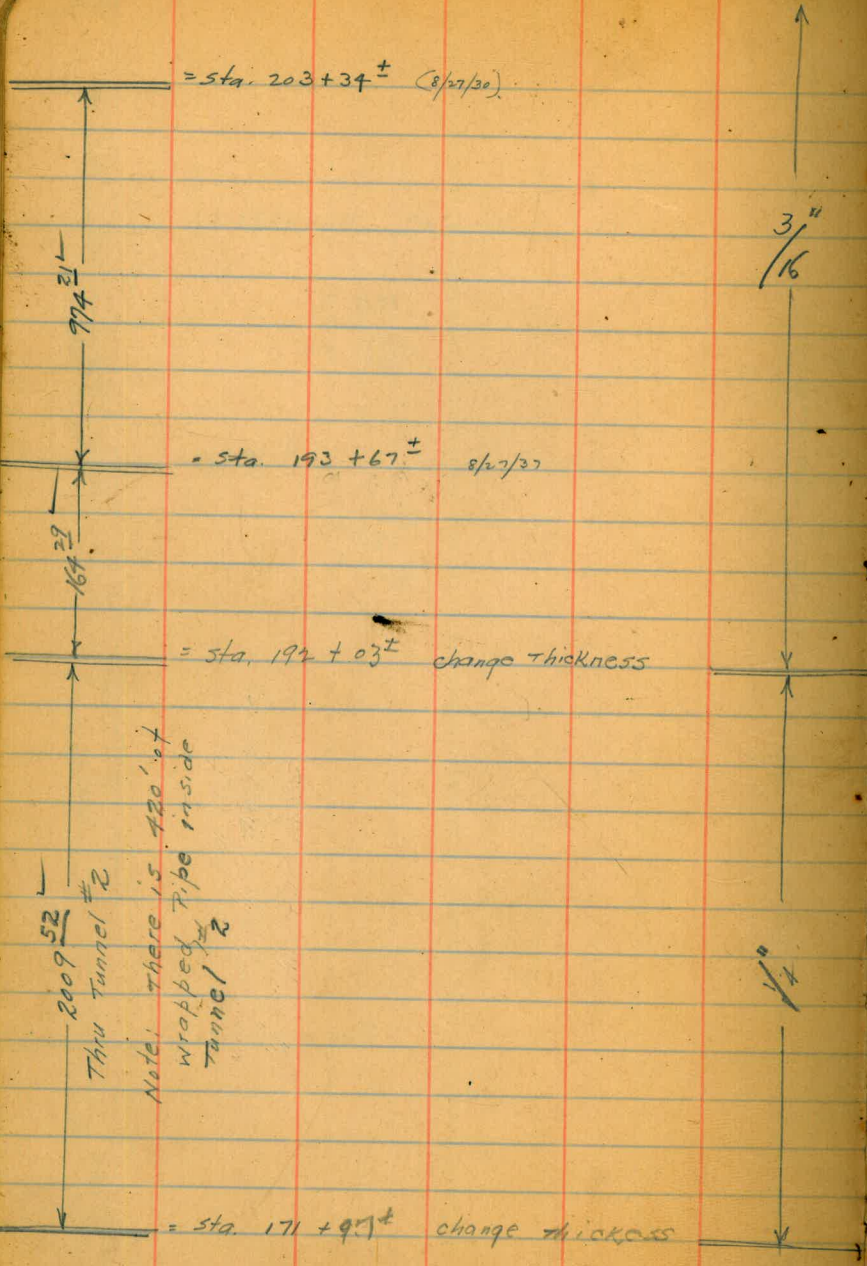 = sta. 203+34 ± (8/27/30)
974 21
3/16"
= sta. 193 +67 ± 8/27/37
164 29
= sta. 192 + 03 ± change Thickness
2009 52
Thru Tunnel #2
Note: There is 420' of
wrapped Pipe inside
Tunnel #2
1/4"
= sta. 171 + 97 ± change thickness